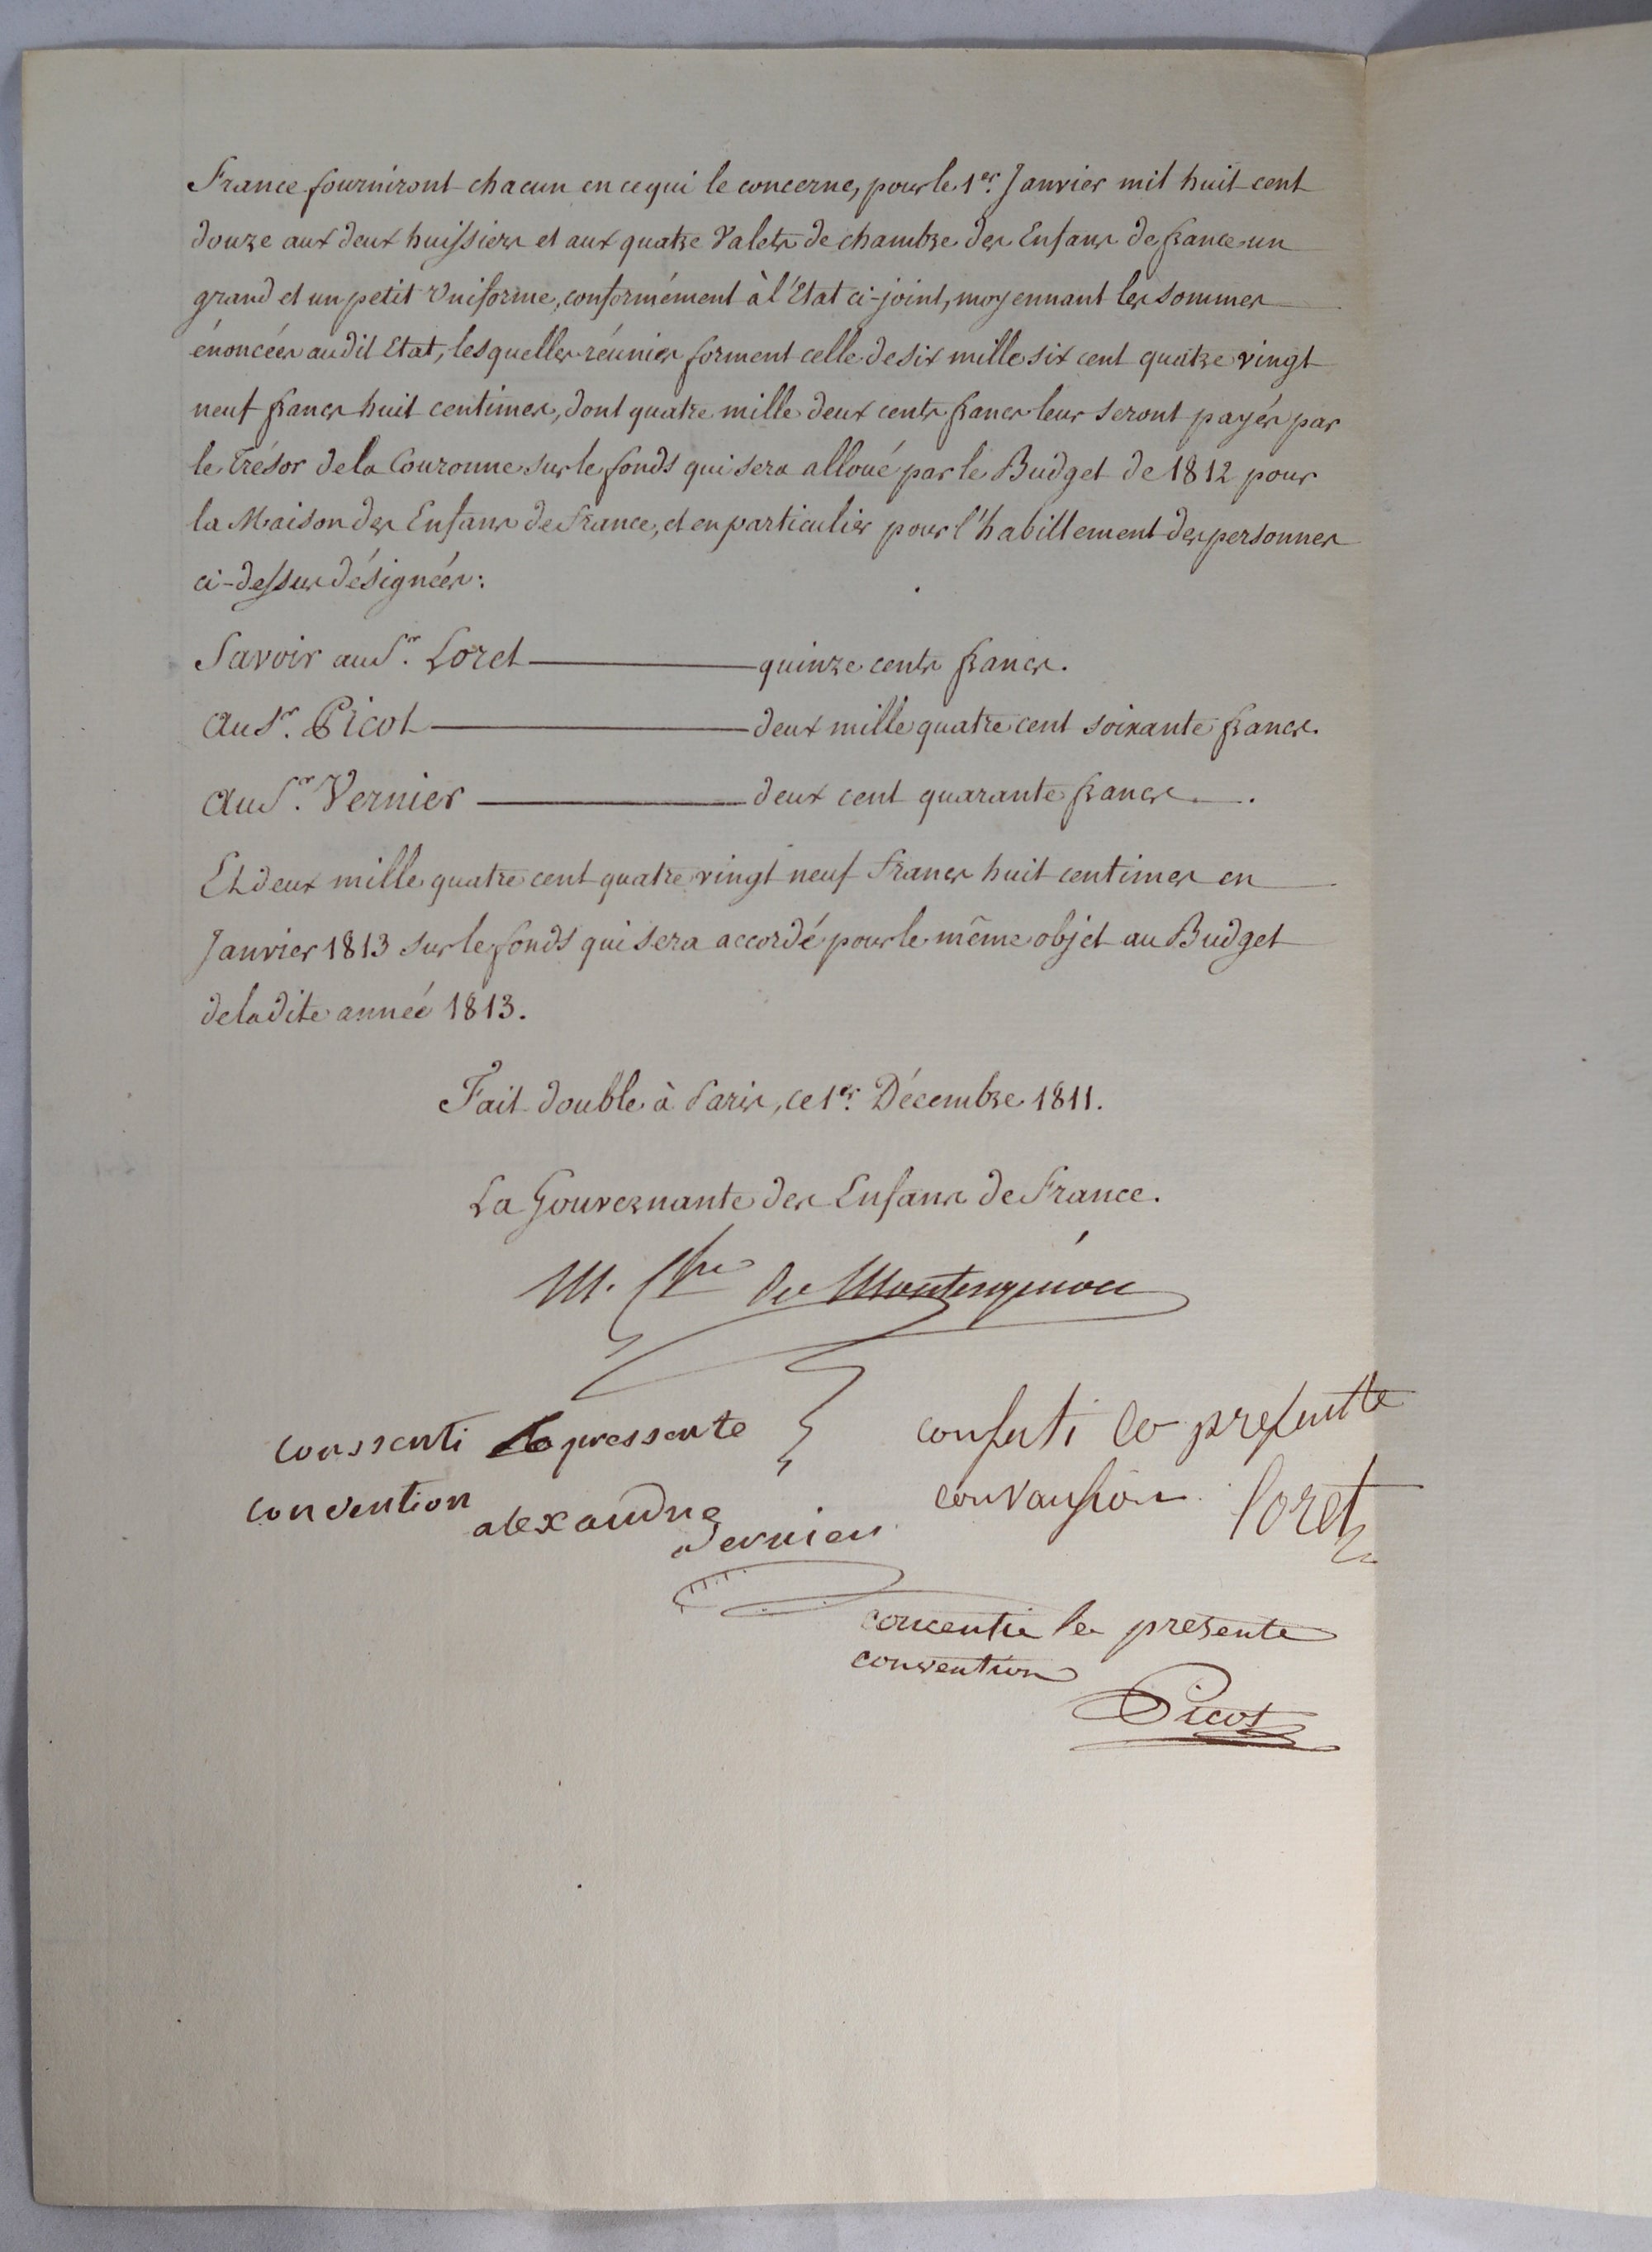 France fourniront chacun en ce qui le concerne, pour le 1er. Janvier mil huit cent
douze aux deux huissiers et aux quatre Valets de chambre des Enfans de france un
grand et un petit Uniforme, conformément à l'Etat ci-joint, moyennant les sommes
énoncées audit Etat, lesquelles réunies forment celle de six mille six cent quatre vingt
neuf francs huit centimes, dont quatre mille deux cents francs leur seront payés par
le Trésor de la Couronne sur le fonds qui sera alloué par le Budget de 1812 pour
la Maison des Enfans de France, et en particulier pour l'habillement des personnes
ci-dessus désignées:
Savoir au Sr. Loret — quinze cents francs.
Au Sr. Picot — deux mille quatre cent soixante francs.
Au Sr. Vernier — deux cent quarante francs.
Et deux mille quatre cent quatre vingt neuf francs huit centimes en
Janvier 1813 sur le fonds qui sera accordé pour le même objet au Budget
de la dite année 1813.
Fait double à Paris, ce 1er. Décembre 1811.
La Gouvernante des Enfans de France.
M. Ctesse de Montesquiou
conssenti la pressente
convention
alexandre
Vernier
consenti la presentte
convansion Loret
concentie la presente
convention
Picot